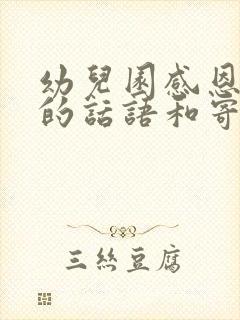 幼兒園感恩
的話語和寄
三絲豆腐